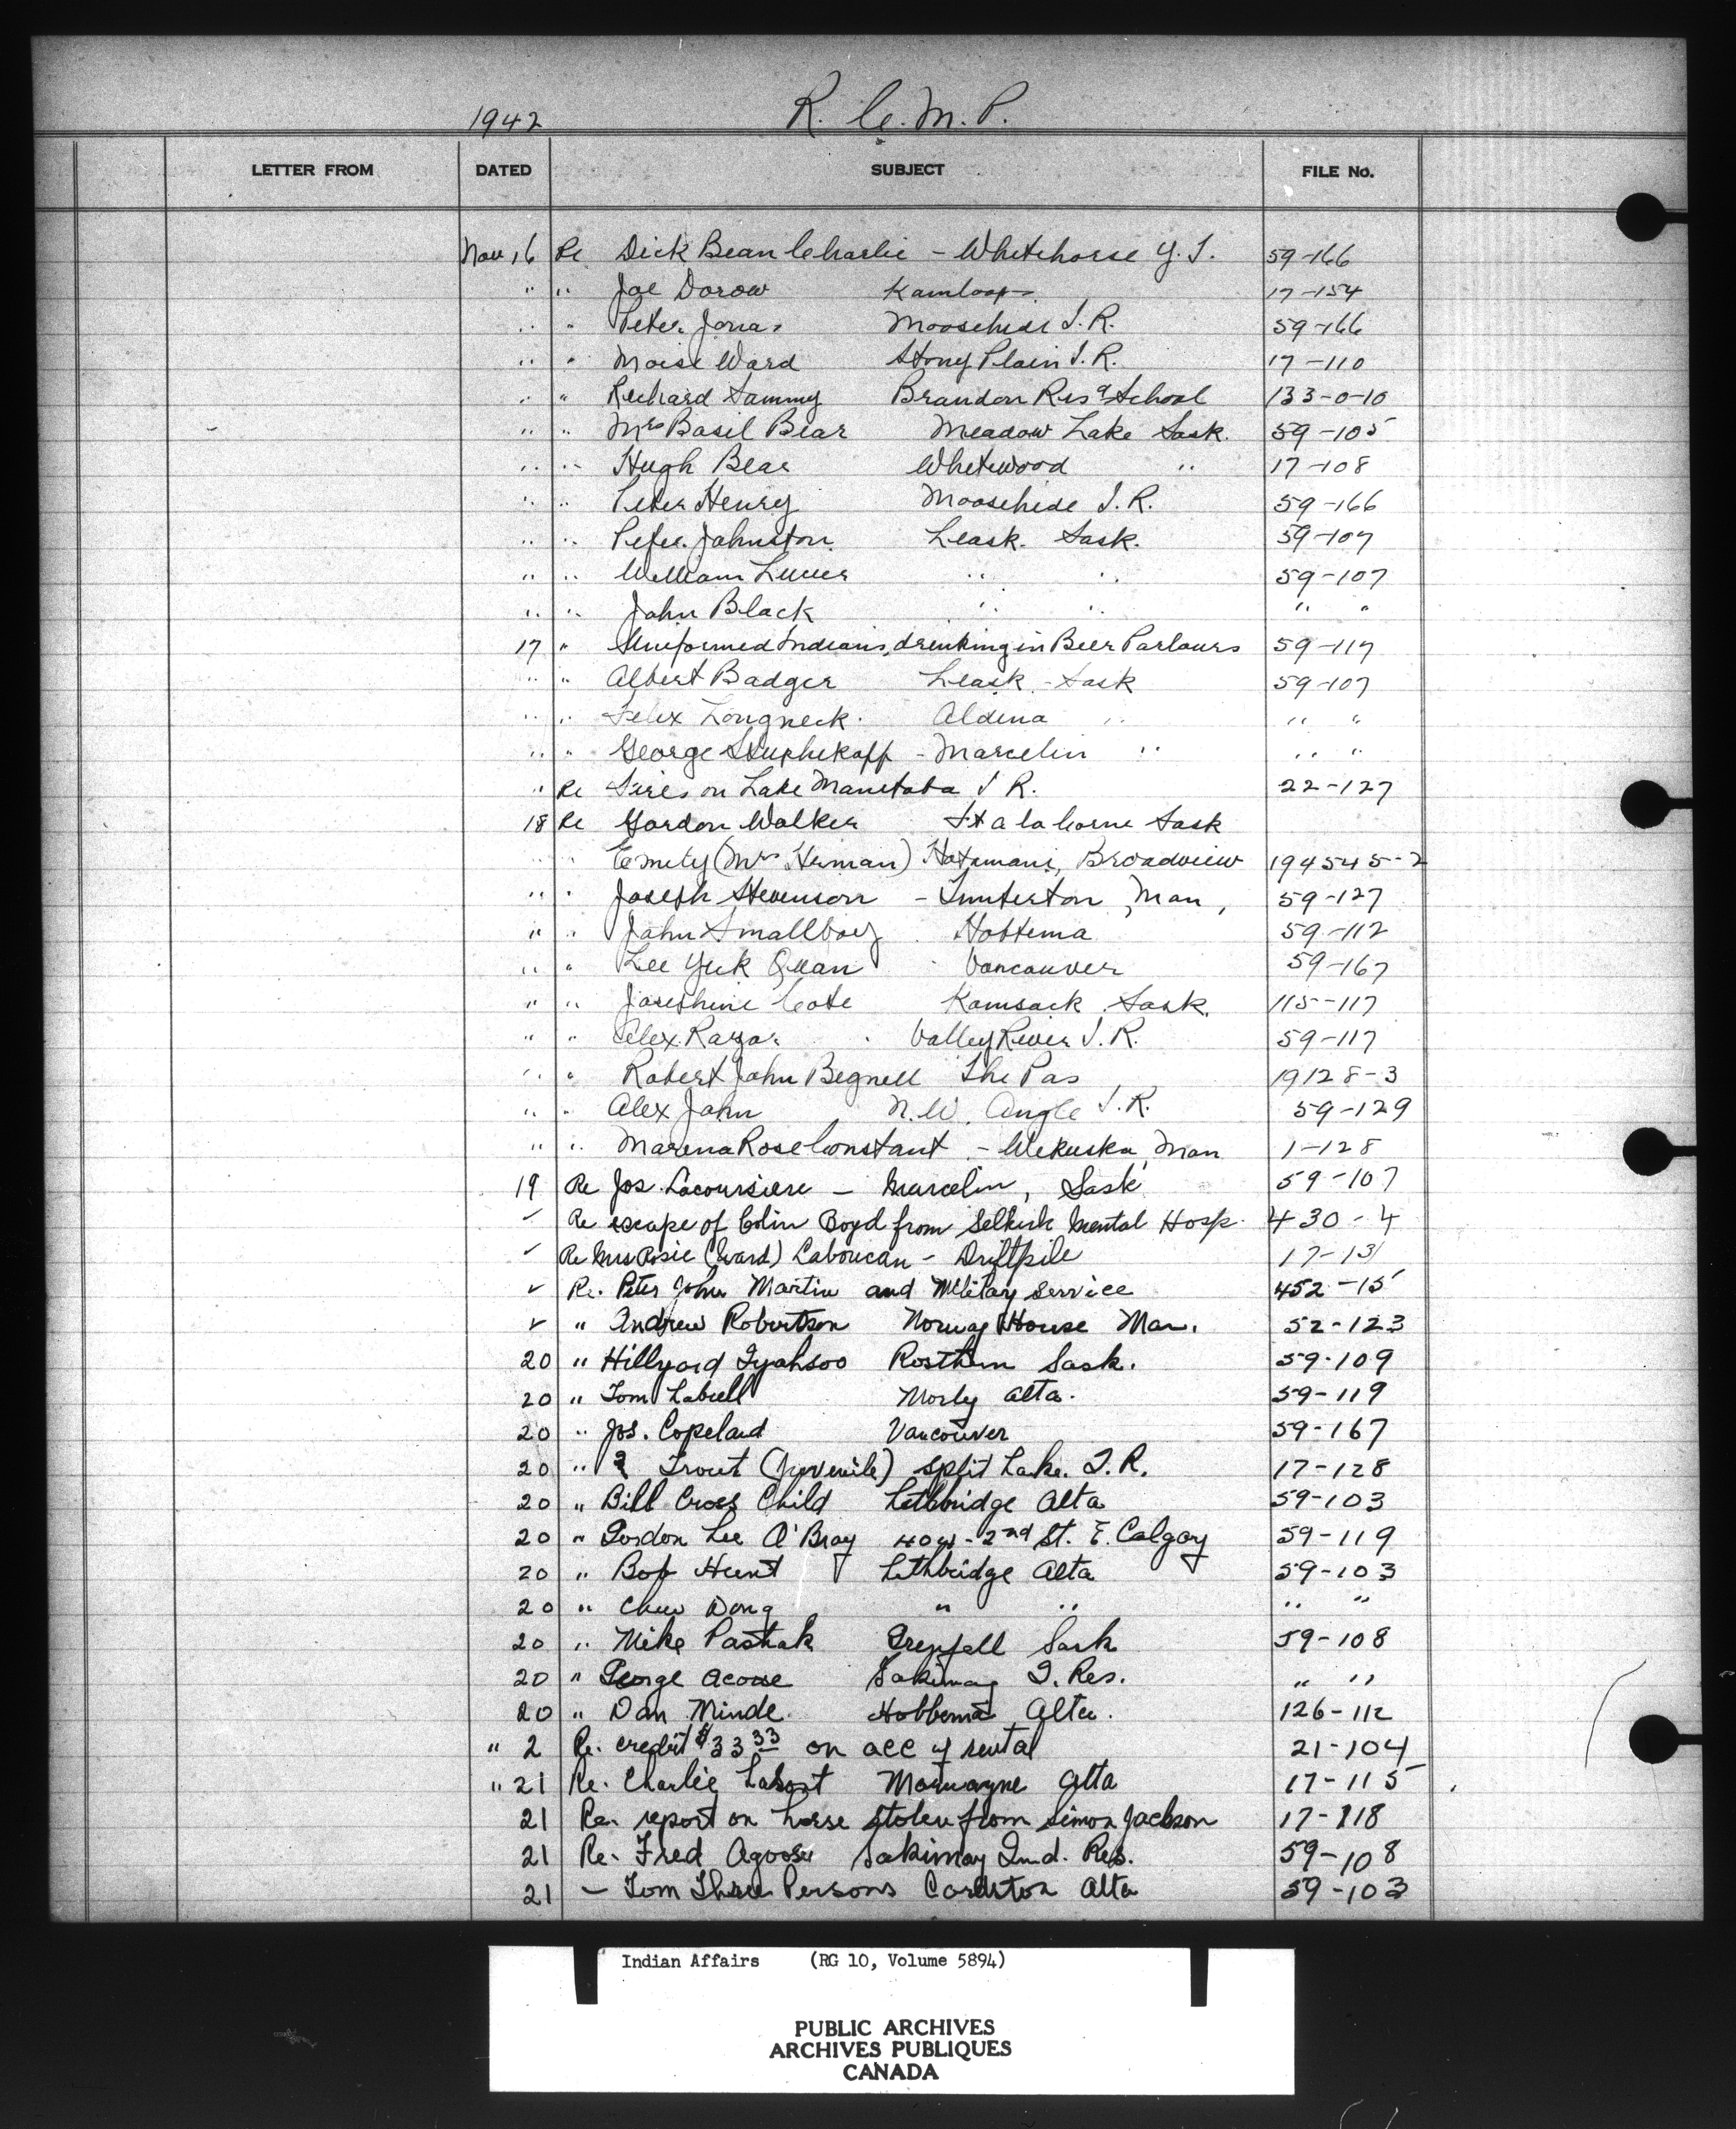 1942 R. C. M. P.
LETTER FROM DATED SUBJECT FILE No.
Nov 16 Re Dick Bean Charlie - Whitehorse Y. T. 59-166
" " Joe Dorow Kamloops 17-154
" " Peter Jonas Moosehide I. R. 59-166
" " Moise Ward Stony Plain I. R. 17-110
" " Richard Sammy Brandon Res. School 133-0-10
" " Mrs Basil Bear Meadow Lake Sask. 59-105
" " Hugh Bear Whitewood " 17-108
" " Peter Henry Moosehide I. R. 59-166
" " Peter Johnston Leask. Sask. 59-107
" " William " " 59-107
" " John Black " " " "
17 " Uniformed Indians, drinking in Beer Parlours 59-117
" " Albert Badger Leask - Sask 59-107
" " Felix Longneck. Aldina " " "
" " George - Marcelin " " "
" Re Fires on Lake Manitoba I R. 22-127
18 Re Gordon Walker Ft a la Corne Sask
" " Emily (Mrs Herman) Broadview 194545-2
" " Joseph Stevenson - Man, 59-127
" " John Smallboy Hobbema 59-112
" " Lee Yuk Quan Vancouver 59-167
" " Josephine Cote Kamsack Sask. 115-117
" " Alex Razor Valley River I. R. 59-117
" " Robert John Begnell The Pas 19128-3
" " Alex John N. W. Angle I. R. 59-129
" " Marena Rose Constant - Wekuska, Man 1-128
19 Re Jos. Lacoursiere - Marcelin, Sask 59-107
" Re escape of Colin Boyd from Selkirk Mental Hosp. 430-4
" Re Mrs Rosie (Ward) Laboucan - Driftpile 17-131
" Re. Peter John Martin and Military Service 452-15
" " Andrew Robertson Norway House Man. 52-123
20 " Hillyard Iyahsoo Rosthern Sask. 59-109
20 " Tom Labell Morly Alta. 59-119
20 " Jos. Copeland Vancouver 59-167
20 " ? Trout (Juvenile) Split Lake. I. R. 17-128
20 " Bill Cross Child Lethbridge Alta 59-103
20 " Gordon Lee O'Bray 2nd St. E. Calgary 59-119
20 " Bob Hunt Lethbridge Alta 59-103
20 " Chew Dong " " " "
20 " Mike Pashak Grenfell Sask 59-108
20 " George Acoose Sakimay I. Res. " "
20 " Dan Minde Hobbema Alta. 126-112
" 2 Re. credit $33 33 on acc of rental 21-104
" 21 Re. Charlie Marwayne Alta 17-115
21 Re. report on horse stolen from Simon Jackson 17-118
21 Re. Fred Agoose Sakimay Ind. Res. 59-108
21 - Tom Three Persons Cardston Alta 59-103
Indian Affairs (RG 10, Volume 5894)
PUBLIC ARCHIVES
ARCHIVES PUBLIQUES
CANADA